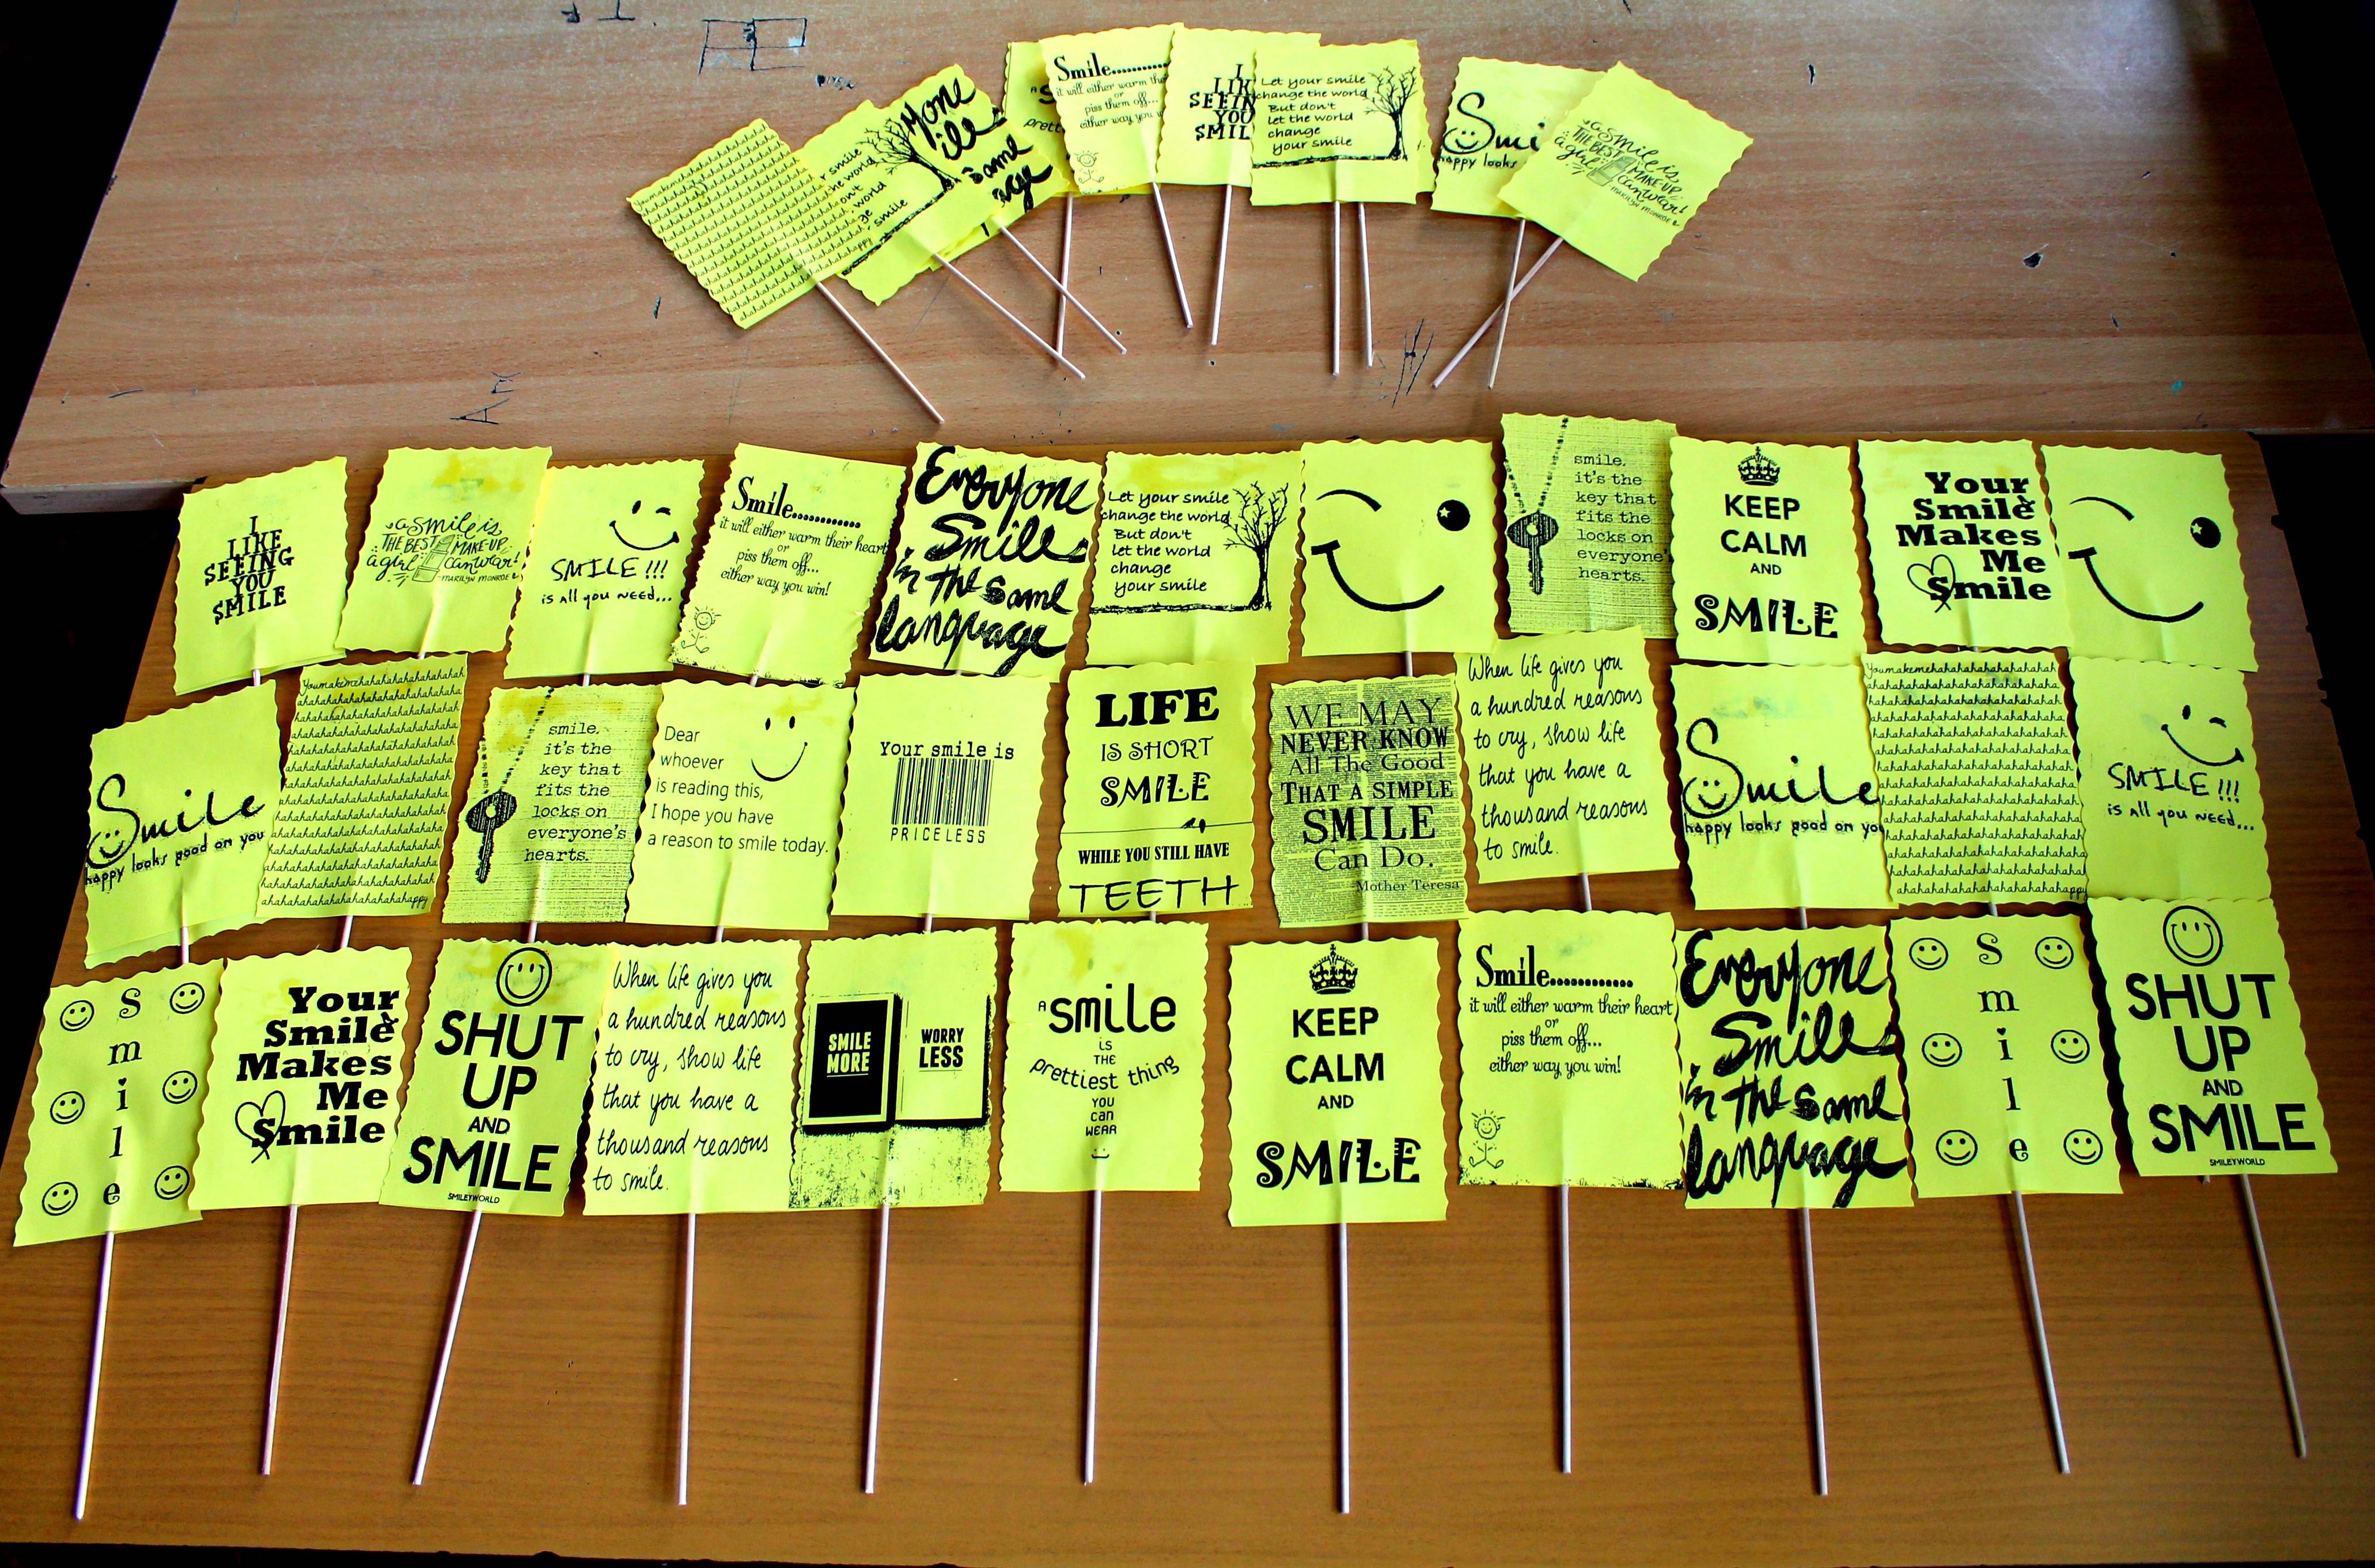 Smile............
it will either warm the
or
piss them off...
either way you
I
LIK
SEEIN
YOU
SMIL
Let your smile
change the world
But don't
let the world
change
your smile
Smi
happy looks
a smile is
THE BEST MAKE-UP
a girl can wear!
MARILYN MONROE
yone
ile
same
age
r smile
the world
on't
world
ge
smile
pretti
Am
I
LIKE
SEEING
YOU
SMILE
a smile is
THE BEST MAKE-UP
a girl can wear!
MARILYN MONROE
SMILE !!!
is all you need...
Smile............
it will either warm their heart
or
piss them off...
either way you win!
Everyone
Smile
in the same
language
Let your smile
change the world
But don't
let the world
change
your smile
smile.
it's the
key that
fits the
locks on
everyone'
hearts.
KEEP
CALM
AND
SMILE
Your
Smile
Makes
Me
Smile
Smile
happy looks good on you
Youmakemehahahahahahahahahah
ahahahahahahahahahahahappy
smile.
it's the
key that
fits the
locks on
everyone's
hearts.
Dear
whoever
is reading this,
I hope you have
a reason to smile today.
Your smile is
PRICELESS
LIFE
IS SHORT
SMILE
WHILE YOU STILL HAVE
TEETH
WE MAY
NEVER KNOW
All The Good
THAT A SIMPLE
SMILE
Can Do.
Mother Teresa
When life gives you
a hundred reasons
to cry, show life
that you have a
thousand reasons
to smile.
Smile
happy looks good on yo
Youmakemehahahahahahahahahah
ahahahahahahahahahahahappy
SMILE !!!
is all you need...
S
m
i
l
e
Your
Smile
Makes
Me
Smile
SHUT
UP
AND
SMILE
SMILEYWORLD
When life gives you
a hundred reasons
to cry, show life
that you have a
thousand reasons
to smile.
SMILE
MORE
WORRY
LESS
A smile
is
THE
prettiest thing
YOU
can
WEAR
KEEP
CALM
AND
SMILE
Smile............
it will either warm their heart
or
piss them off...
either way you win!
Everyone
Smile
in the same
language
S
m
i
l
e
SHUT
UP
AND
SMILE
SMILEYWORLD